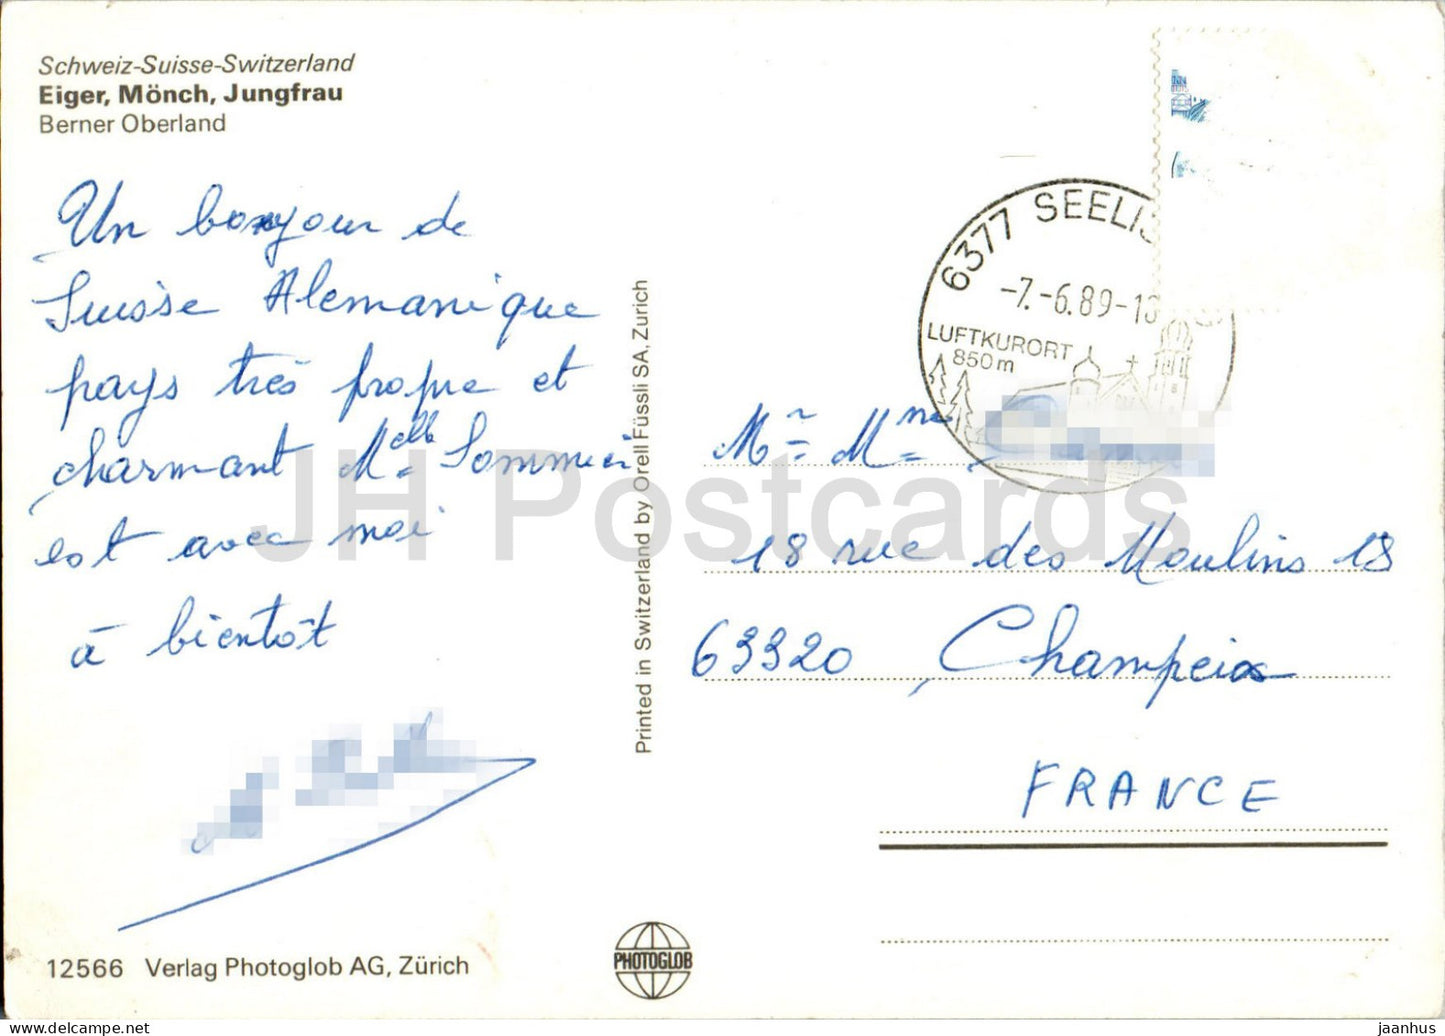 Schweiz-Suisse-Switzerland
Eiger, Mönch, Jungfrau
Berner Oberland
Un bonjour de
Suisse Alemanique
pays très propre et
charmant Melle Sommier
est avec moi
à bientôt
12566 Verlag Photoglob AG, Zürich
Printed in Switzerland by Orell Füssli SA, Zürich
PHOTOGLOB
6377 SEELIS
-7.-6.89-18
LUFTKURORT
850m
Mr Mme
18 rue des Moulins 18
63320 Champeix
FRANCE
JH Postcards
jaanhus — Delcampe.net